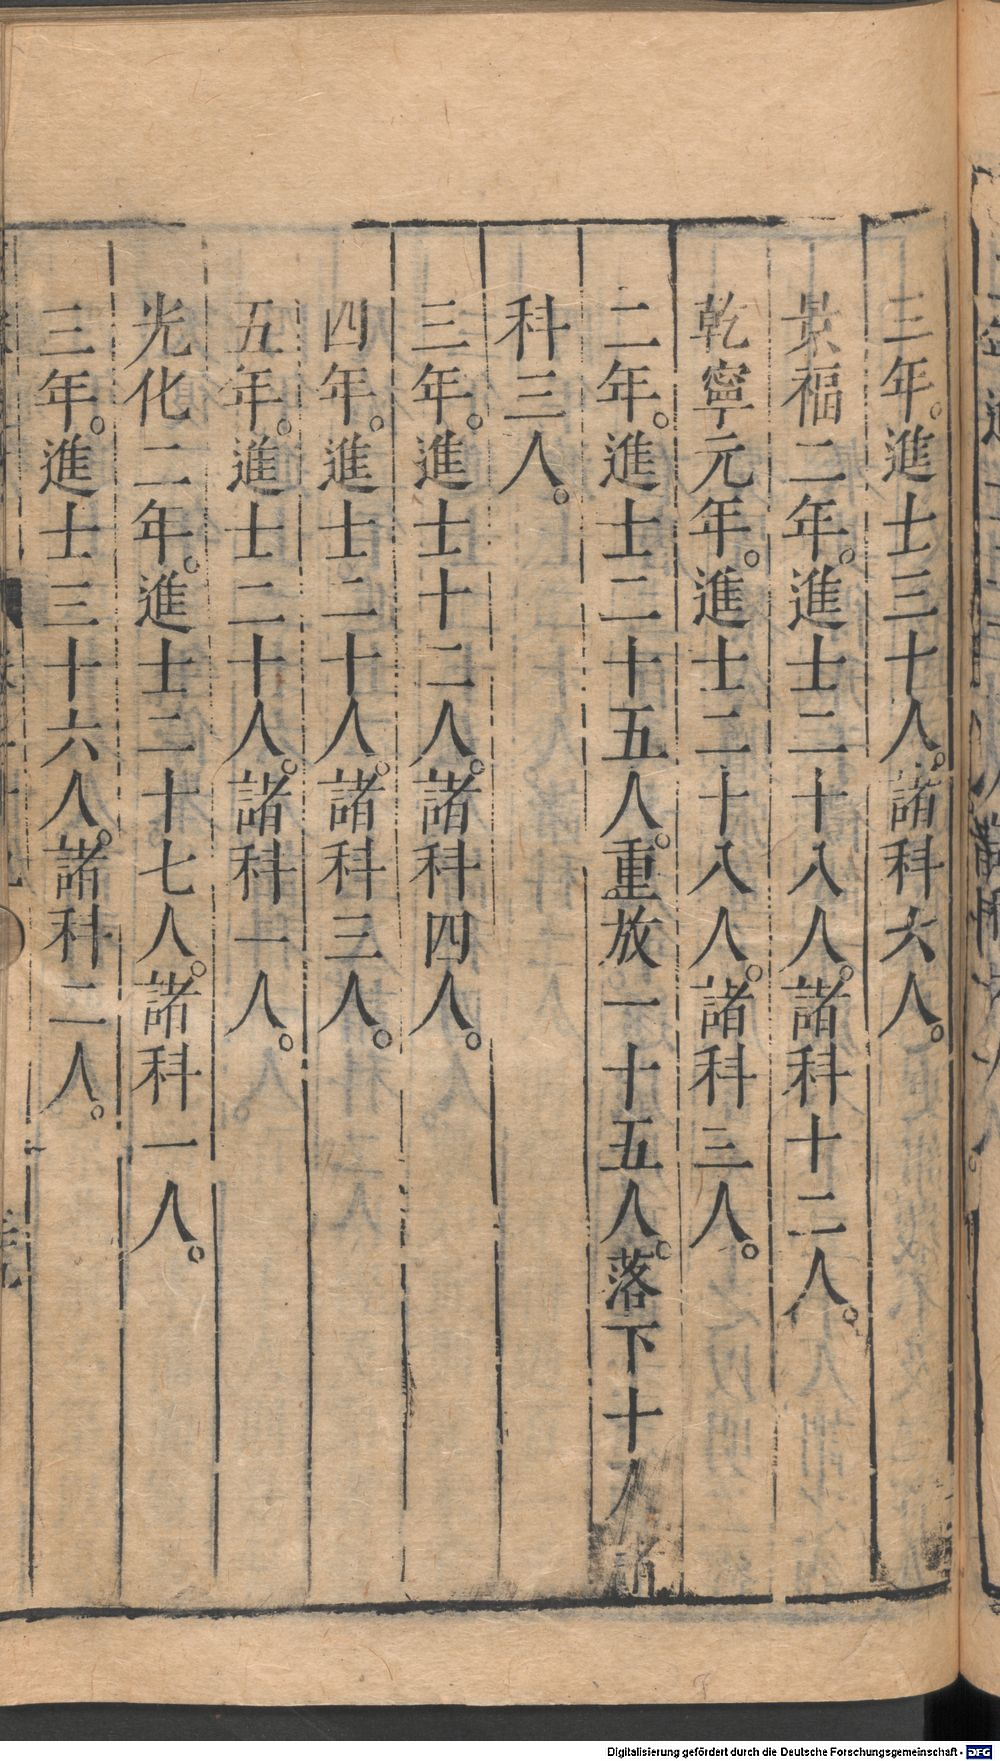 三年。進士三十人。諸科六人。
景福二年。進士二十八人。諸科十二人。
乾寧元年。進士二十八人。諸科三人。
二年。進士二十五人。重放一十五人。落下十人諸
科三人。
三年。進士十二人。諸科四人。
四年。進士二十人。諸科三人。
五年。進士二十人。諸科一人。
光化二年。進士二十七人。諸科一人。
三年。進士三十六人。諸科二人。
Digitalisierung gefördert durch die Deutsche Forschungsgemeinschaft - DFG